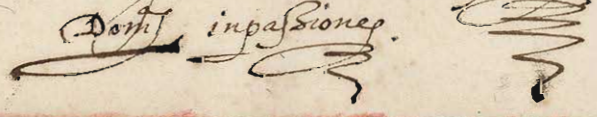 Dom̃ inpassione.